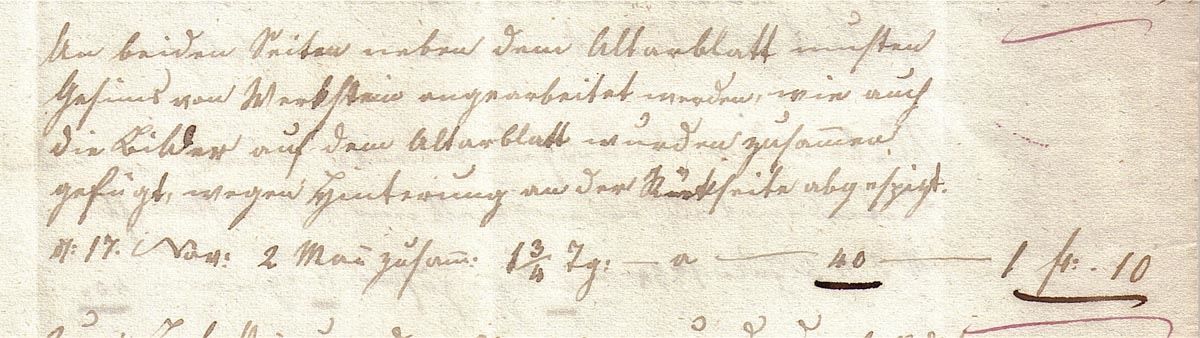 An beiden Seiten neben dem Altarblatt musten
Gesims von Werkstein angearbeitet werden, wie auch
die Bilder auf dem Altarblatt wurden zusamen
gefügt, wegen an der Rückseite
d: 17. Nov: 2 Man zusam: 1 3/4 Tg: — a — 40 — 1 fr: . 10